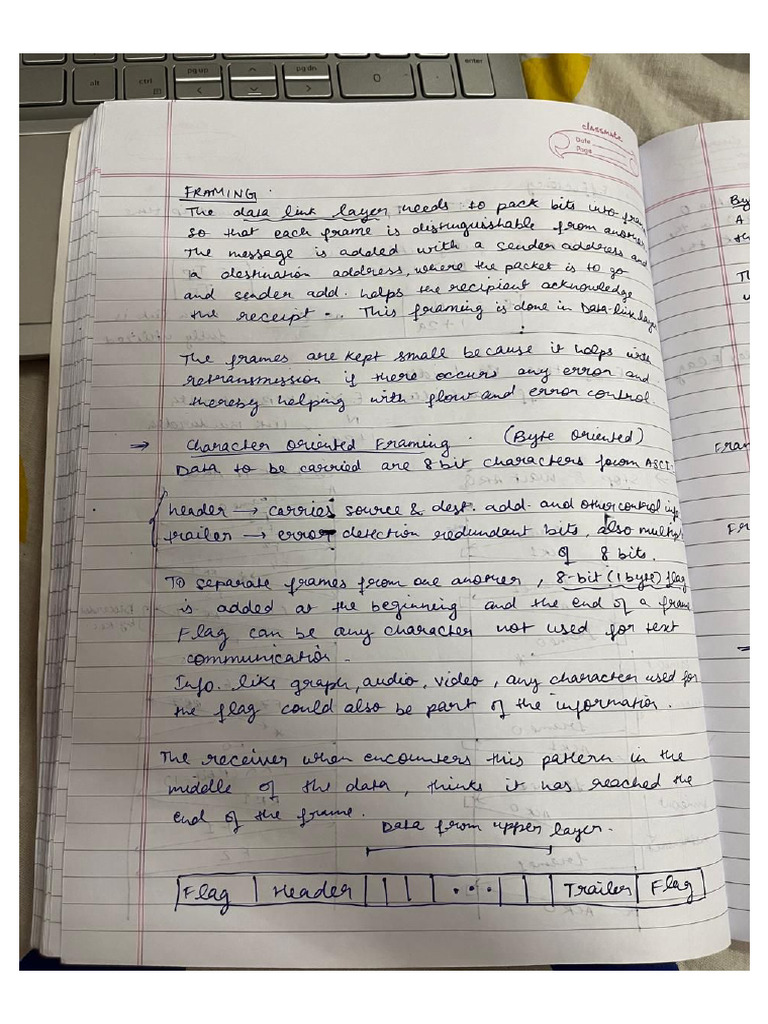 enter
pg up
pg dn
alt
ctrl
0
.
classmate
Date
Page
FRAMING.
The data link layer needs to pack bits into fram
so that each frame is distinguishable from another
The message is added with a sender address and
a destination address, where the packet is to go
and sender add. helps the recipient acknowledge
the receipt -. . This framing is done in Data-link layer
The frames are kept small because it helps with
retransmission if there occurs any error and
thereby helping with flow and error control
→ Character Oriented Framing. (Byte Oriented)
Data to be carried are 8 bit characters from ASCII
header → carries source & dest. add. and other control info
trailer → error detection redundant bits, also multip
of 8 bits.
To separate frames from one another, 8-bit (1 byte) flag
is added at the beginning and the end of a frame
Flag can be any character not used for text
communication.
Info. like graph, audio, video, any character used for
the flag could also be part of the information.
The receiver when encounters this pattern in the
middle of the data, thinks it has reached the
end of the frame.
Data from upper layer.
Flag Header ... Trailer Flag
By
A
th
Th
Fram
Fr